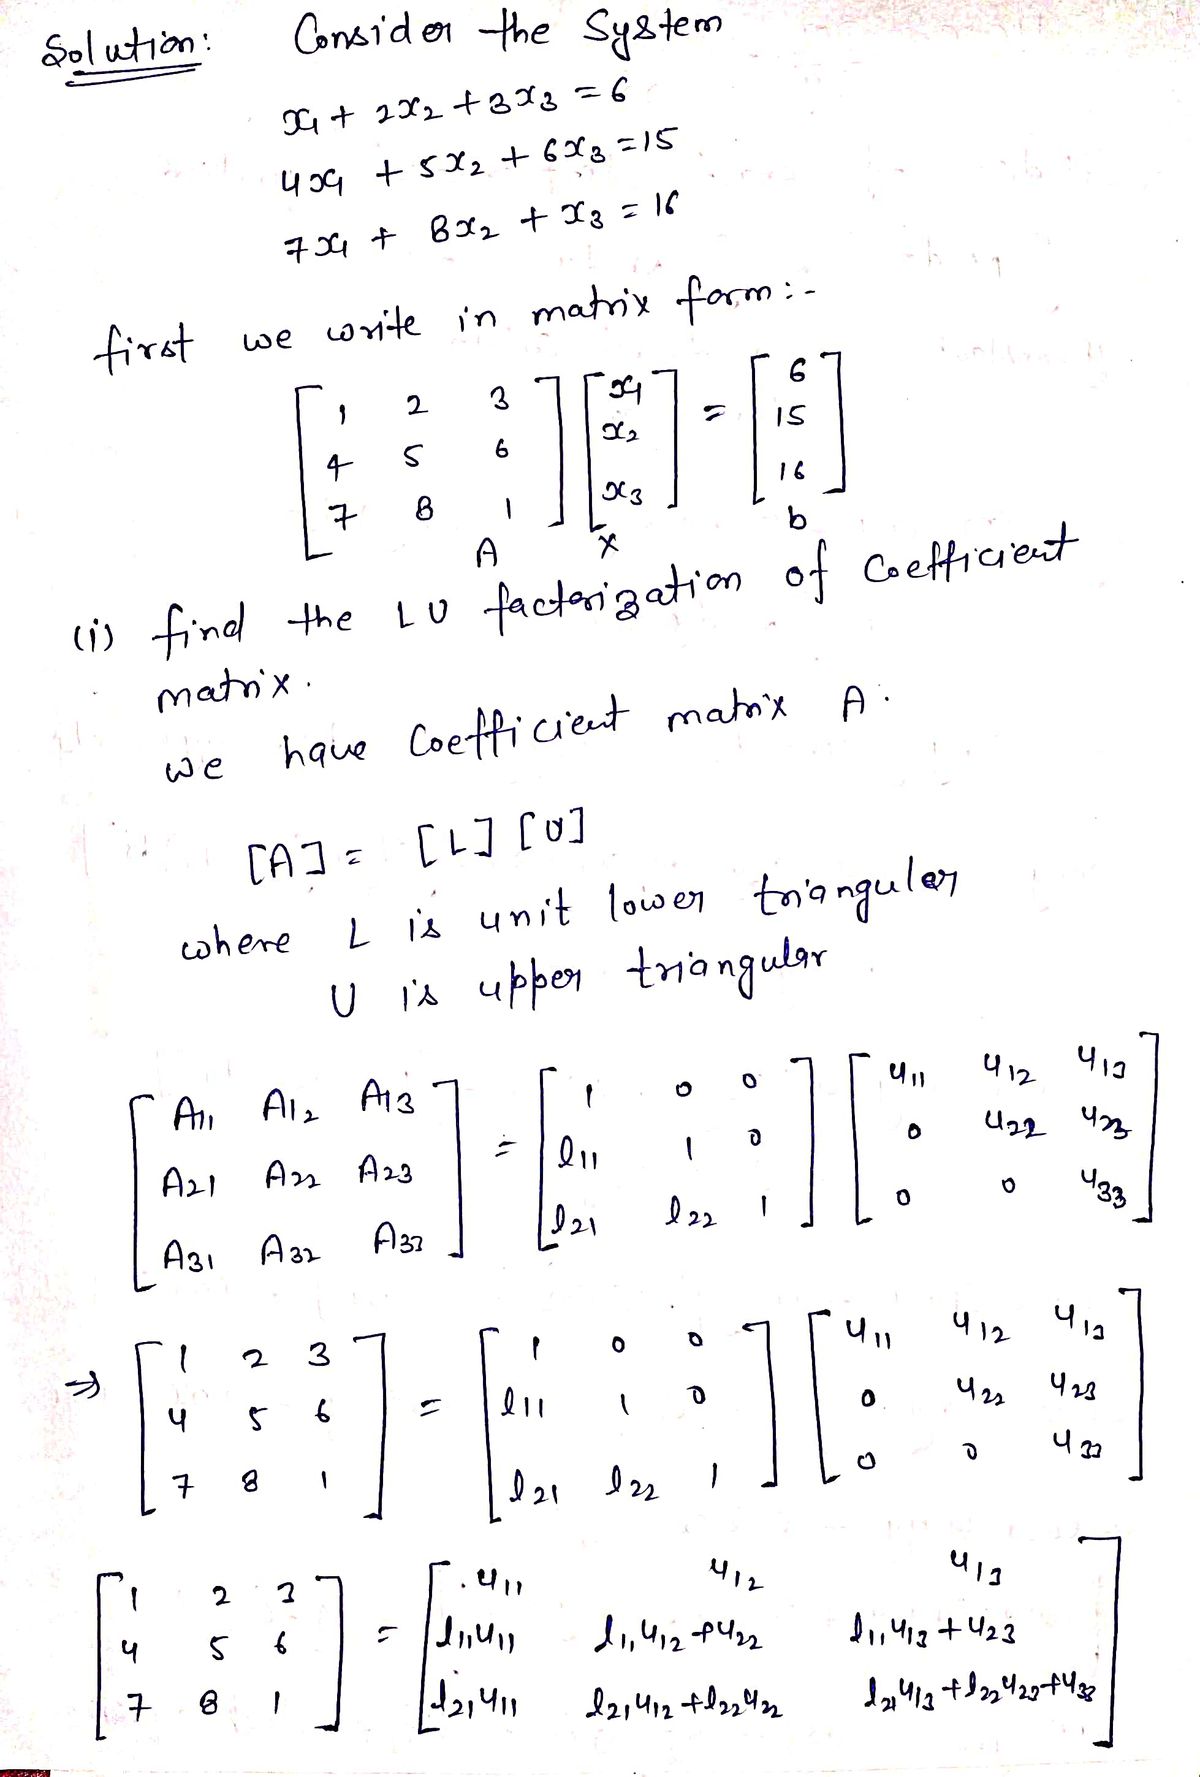 Solution: Consider the System
x₁ + 2x₂ + 3x₃ = 6
4x₁ + 5x₂ + 6x₃ = 15
7x₁ + 8x₂ + x₃ = 16
first we write in matrix form:-
[1 2 3; 4 5 6; 7 8 1] [x₁; x₂; x₃] = [6; 15; 16]
A x b
(i) find the LU factorization of Coefficient
matrix.
we have Coefficient matrix A.
[A] = [L] [U]
where L is unit lower triangular
U is upper triangular
[A₁₁ A₁₂ A₁₃; A₂₁ A₂₂ A₂₃; A₃₁ A₃₂ A₃₃] = [1 0 0; l₁₁ 1 0; l₂₁ l₂₂ 1] [u₁₁ u₁₂ u₁₃; 0 u₂₂ u₂₃; 0 0 u₃₃]
⇒ [1 2 3; 4 5 6; 7 8 1] = [1 0 0; l₁₁ 1 0; l₂₁ l₂₂ 1] [u₁₁ u₁₂ u₁₃; 0 u₂₂ u₂₃; 0 0 u₃₃]
[1 2 3; 4 5 6; 7 8 1] = [u₁₁ u₁₂ u₁₃; l₁₁u₁₁ l₁₁u₁₂+u₂₂ l₁₁u₁₃+u₂₃; l₂₁u₁₁ l₂₁u₁₂+l₂₂u₂₂ l₂₁u₁₃+l₂₂u₂₃+u₃₃]